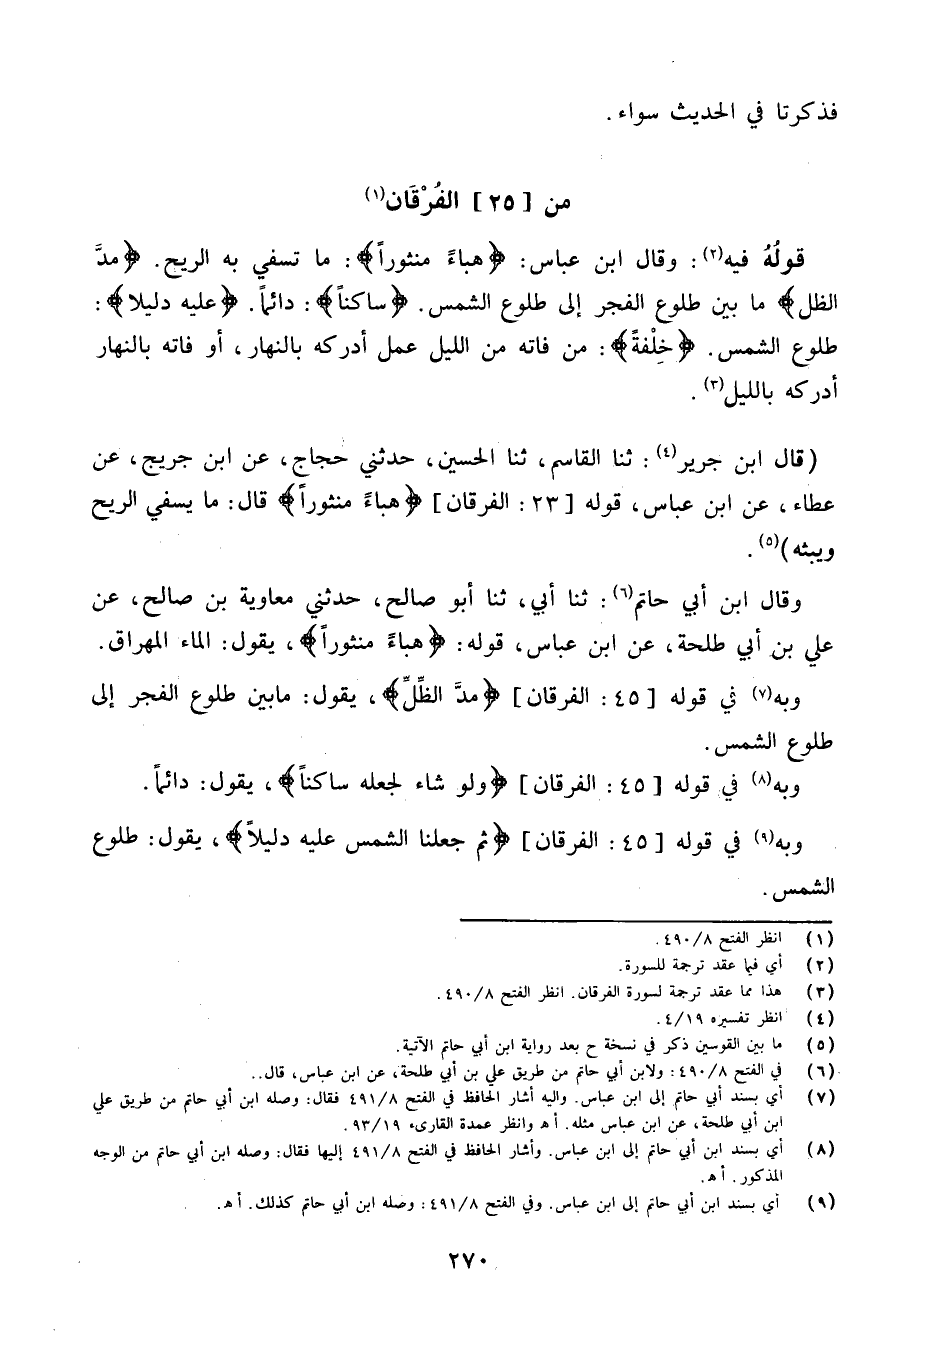 فذكرتا في الحديث سواء .
من [ ٢٥ ] الفُرْقَان(١)
قولُهُ فيه(٢) : وقال ابن عباس : ﴿هباءً منثوراً﴾ : ما تسفي به الريح . ﴿مدَّ
الظل﴾ ما بين طلوع الفجر إلى طلوع الشمس . ﴿ساكناً﴾ : دائماً . ﴿عليه دليلا﴾ :
طلوع الشمس . ﴿خِلْفةً﴾ : من فاته من الليل عمل أدركه بالنهار ، أو فاته بالنهار
أدركه بالليل(٣) .
(قال ابن جرير(٤) : ثنا القاسم ، ثنا الحسين ، حدثني حجاج ، عن ابن جريج ، عن
عطاء ، عن ابن عباس ، قوله [ ٢٣ : الفرقان ] ﴿هباءً منثوراً﴾ قال : ما يسفي الريح
ويبثه)(٥) .
وقال ابن أبي حاتم(٦) : ثنا أبي ، ثنا أبو صالح ، حدثني معاوية بن صالح ، عن
علي بن أبي طلحة ، عن ابن عباس ، قوله : ﴿هباءً منثوراً﴾ ، يقول : الماء المهراق .
وبه(٧) في قوله [ ٤٥ : الفرقان ] ﴿مدَّ الظِّلِّ﴾ ، يقول : مابين طلوع الفجر إلى
طلوع الشمس .
وبه(٨) في قوله [ ٤٥ : الفرقان ] ﴿ولو شاء لجعله ساكناً﴾ ، يقول : دائماً .
وبه(٩) في قوله [ ٤٥ : الفرقان ] ﴿ثم جعلنا الشمس عليه دليلاً﴾ ، يقول : طلوع
الشمس .
(١) انظر الفتح ٤٩٠/٨ .
(٢) أي فيما عقد ترجمة للسورة .
(٣) هذا مما عقد ترجمة لسورة الفرقان . انظر الفتح ٤٩٠/٨ .
(٤) انظر تفسيره ٤/١٩ .
(٥) ما بين القوسين ذكر في نسخة ح بعد رواية ابن أبي حاتم الآتية .
(٦) في الفتح ٤٩٠/٨ : ولابن أبي حاتم من طريق علي بن أبي طلحة ، عن ابن عباس ، قال ..
(٧) أي بسند أبي حاتم إلى ابن عباس . واليه أشار الحافظ في الفتح ٤٩١/٨ فقال : وصله ابن أبي حاتم من طريق علي
ابن أبي طلحة ، عن ابن عباس مثله . أ هـ وانظر عمدة القارىء ٩٣/١٩ .
(٨) أي بسند ابن أبي حاتم إلى ابن عباس . وأشار الحافظ في الفتح ٤٩١/٨ إليها فقال : وصله ابن أبي حاتم من الوجه
المذكور . أ هـ .
(٩) أي بسند ابن أبي حاتم إلى ابن عباس . وفي الفتح ٤٩١/٨ : وصله ابن أبي حاتم كذلك . أ هـ .
٢٧٠